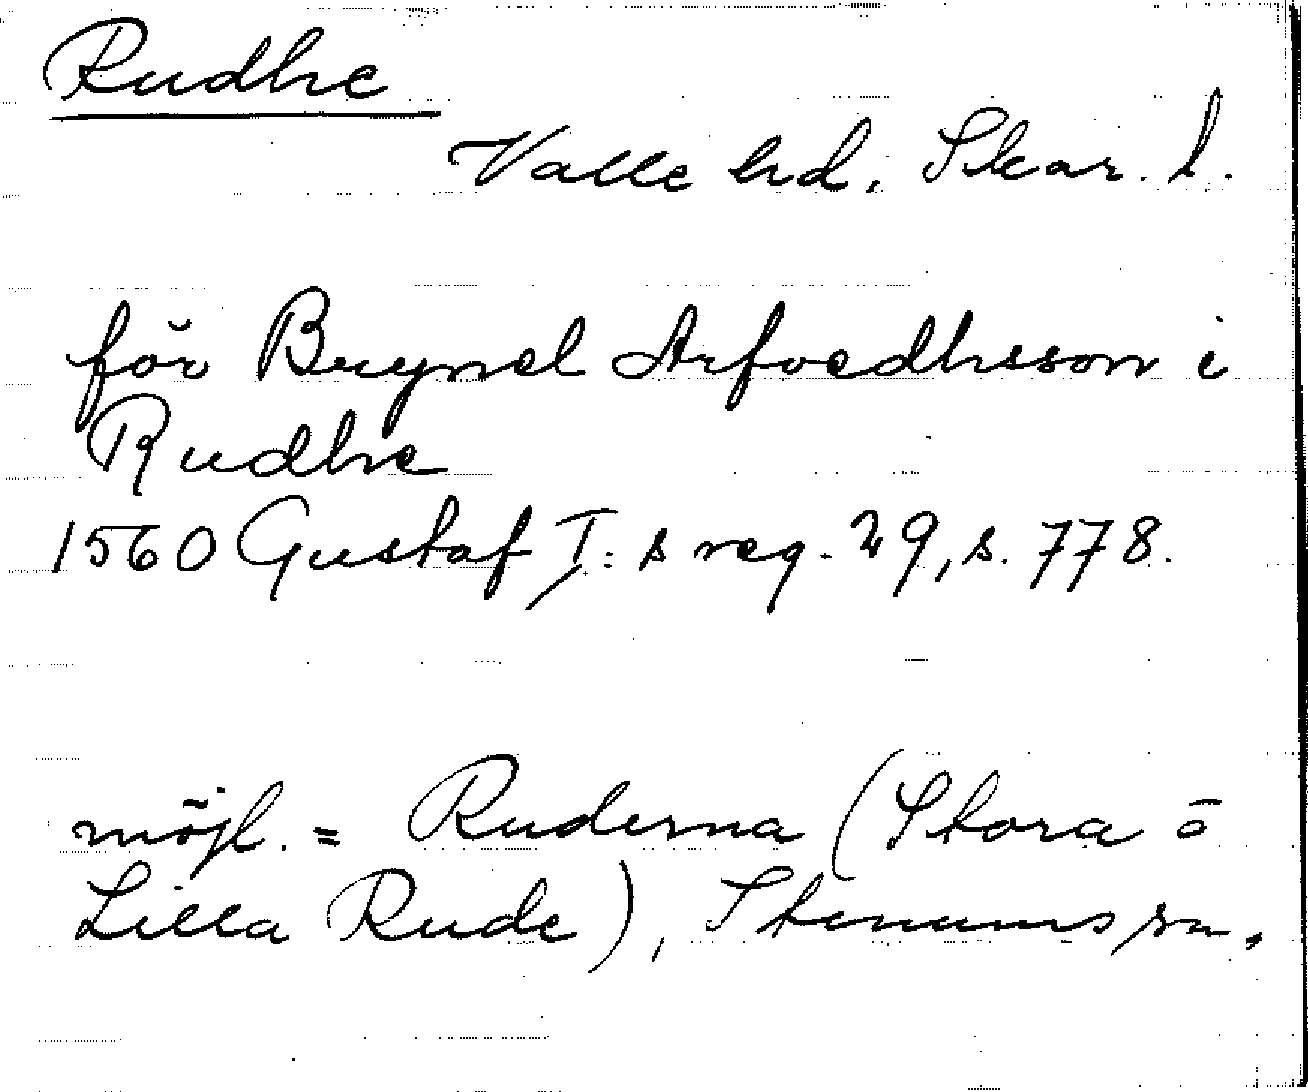 Rudhe
Valle hd. Skar. l.
för Brynel Arfvedhsson i
Rudhe
1560 Gustaf I:s reg. 29, s. 778.
möjl. = Ruderna (Stora o
Lilla Rude), Stenums sn.